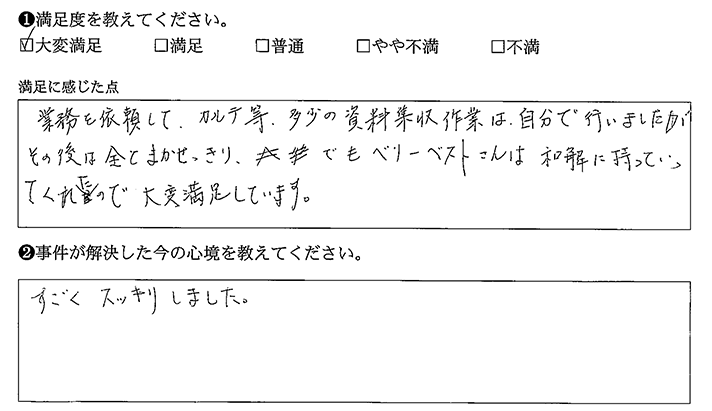 ❶満足度を教えてください。
☑大変満足 □満足 □普通 □やや不満 □不満
満足に感じた点
業務を依頼して、カルテ等、多少の資料集収作業は、自分で行いましたが
その後は全てまかせっきり、でもベリーベストさんは和解に持っていっ
てくれたので大変満足しています。
❷事件が解決した今の心境を教えてください。
すごくスッキリしました。